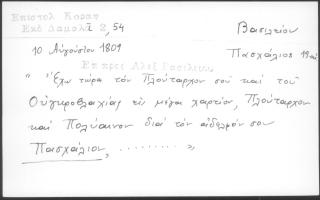 Επιστολ Κοραη
Εκδ Δαμαλᾶ 2, 54
Βασιλείου
10 Αὐγούστου 1801
Πασχάλιος
Επ προς Αλεξ Βασιλειου
"Ἔχω τώρα τόν Πλούταρχον σοῦ καί τοῦ
Οὑγκροβλαχίας εἰς μέγα χαρτίον, Πλούταρχον
καί Πολύαινον διά τόν ἀδελφόν σου
Πασχάλιον, ........ ,,